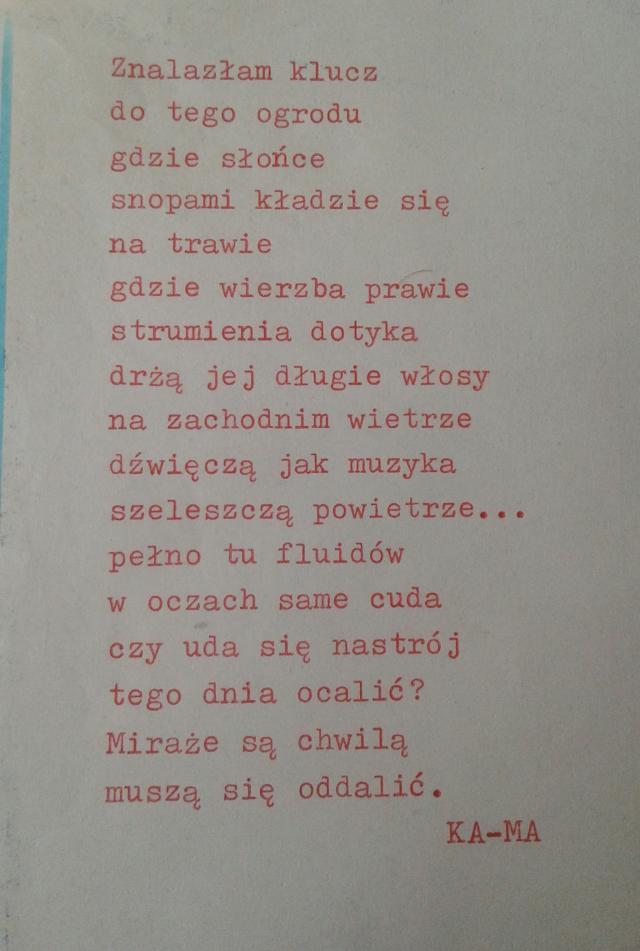 Znalazłam klucz
do tego ogrodu
gdzie słońce
snopami kładzie się
na trawie
gdzie wierzba prawie
strumienia dotyka
drżą jej długie włosy
na zachodnim wietrze
dźwięczą jak muzyka
szeleszczą powietrze...
pełno tu fluidów
w oczach same cuda
czy uda się nastrój
tego dnia ocalić?
Miraże są chwilą
muszą się oddalić.
KA-MA